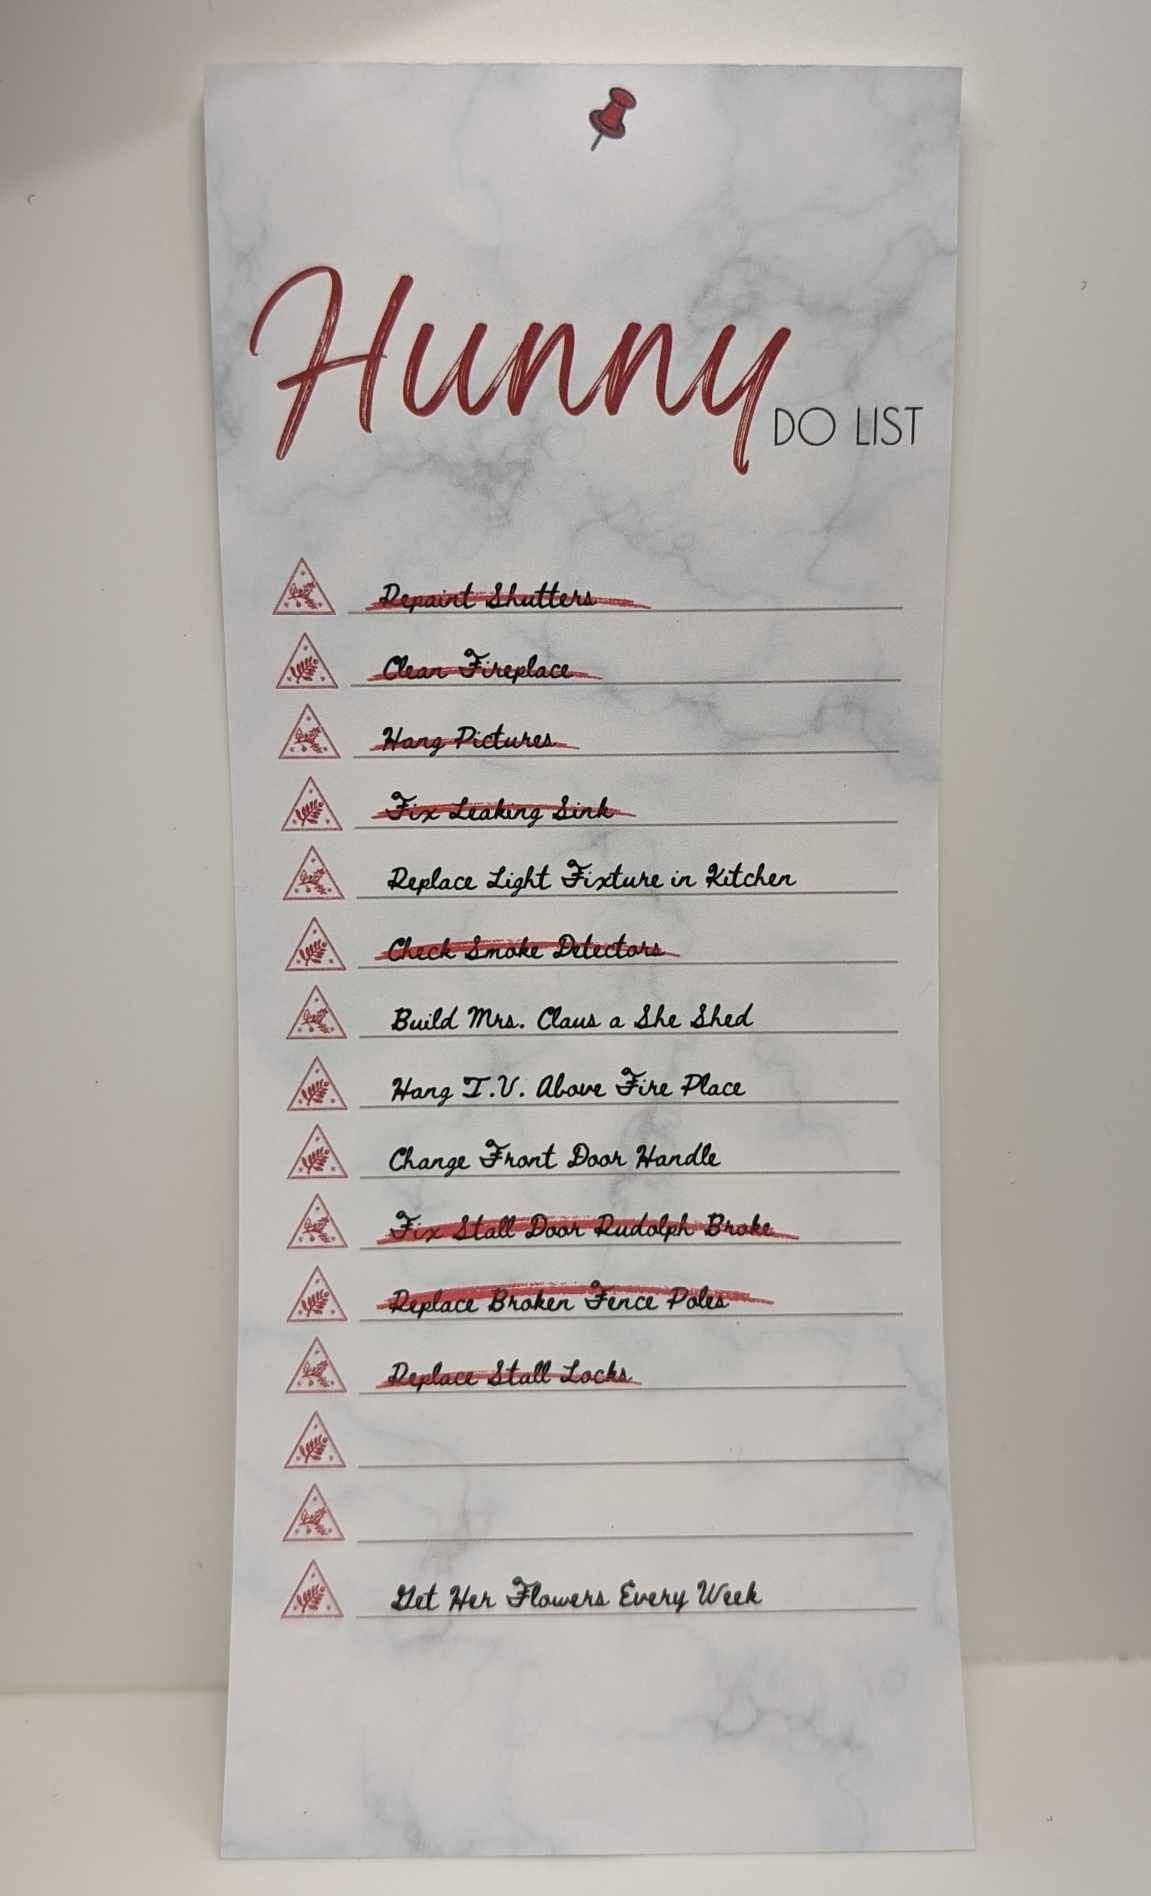 Hunny
DO LIST
Repaint Shutters
Clean Fireplace
Hang Pictures
Fix Leaking Sink
Replace Light Fixture in Kitchen
Check Smoke Detectors
Build Mrs. Claus a She Shed
Hang T.V. Above Fire Place
Change Front Door Handle
Fix Stall Door Rudolph Broke
Replace Broken Fence Poles
Replace Stall Locks
Get Her Flowers Every Week